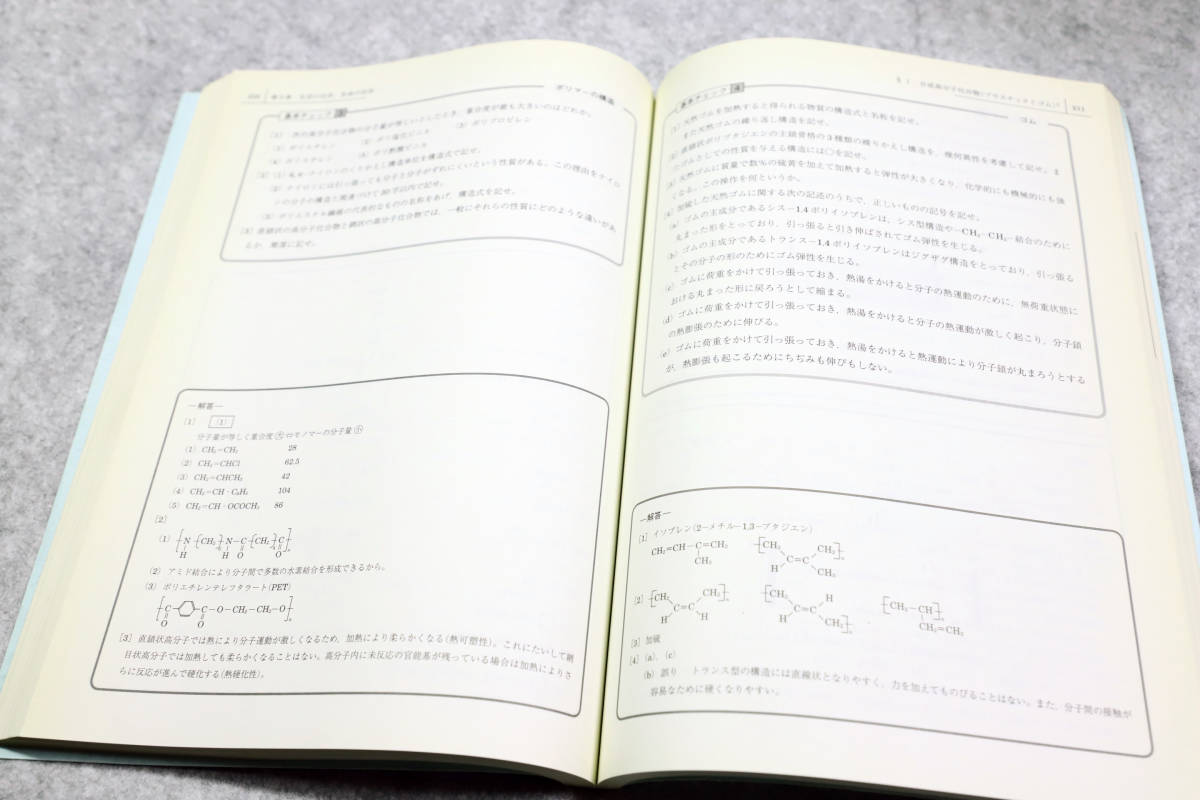 ポリマーの構造
基本チェック 3
[1] 一次の高分子化合物の分子量が等しいとしたとき，重合度が最も大きいのはどれか。
(1) ポリエチレン (2) ポリ塩化ビニル (3) ポリプロピレン
(4) ポリスチレン (5) ポリ酢酸ビニル
[2] (1) 6,6-ナイロンのくりかえし構造単位を構造式で記せ。
(2) ナイロンには引っ張っても分子と分子がずれにくいという性質がある。この理由をナイロ
ンの分子の構造と関連づけて30字以内で記せ。
(3) ポリエステル繊維の代表的なものの名称をあげ，構造式を記せ。
[3] 直鎖状の高分子化合物と網状の高分子化合物では，一般にそれらの性質にどのような違いがあ
るか，簡潔に記せ。
―解答―
[1] (1)
分子量が等しく重合度大⇔モノマーの分子量小
(1) CH₂=CH₂ 28
(2) CH₂=CHCl 62.5
(3) CH₂=CHCH₃ 42
(4) CH₂=CH・C₆H₅ 104
(5) CH₂=CH・OCOCH₃ 86
[2]
(1) [N-(CH₂)-N-C-(CH₂)-C]n
H H O O
(2) アミド結合により分子間で多数の水素結合を形成できるから。
(3) ポリエチレンテレフタラート(PET)
[C-C-O-CH₂-CH₂-O]n
O O
[3] 直鎖状高分子では熱により分子運動が激しくなるため，加熱により柔らかくなる(熱可塑性)。これにたいして網
目状高分子では加熱しても柔らかくなることはない。高分子内に未反応の官能基が残っている場合は加熱によりさ
らに反応が進んで硬化する(熱硬化性)。
§1 合成高分子化合物(プラスチックとゴム) 211
基本チェック 4
ゴム
[1] 天然ゴムを加熱すると得られる物質の構造式と名称を記せ。
また天然ゴムの繰り返し構造を記せ。
[2] 直鎖状ポリブタジエンの主鎖骨格の3種類の繰りかえし構造を，幾何異性を考慮して記せ。ま
たゴムとしての性質を与える構造には○を記せ。
[3] 天然ゴムに質量で数%の硫黄を加えて加熱すると弾性が大きくなり，化学的にも機械的にも強
くなる。この操作を何というか。
[4] 加硫した天然ゴムに関する次の記述のうちで，正しいものの記号を記せ。
(a) ゴムの主成分であるシス-1,4ポリイソプレンは，シス型構造や-CH₂-CH₂-結合のために
丸まった形をとっており，引っ張ると引き伸ばされてゴム弾性を生じる。
(b) ゴムの主成分であるトランス-1,4ポリイソプレンはジグザグ構造をとっており，引っ張る
とその分子の形のためにゴム弾性を生じる。
(c) ゴムに荷重をかけて引っ張っておき，熱湯をかけると分子の熱運動のために，無荷重状態に
おける丸まった形に戻ろうとして縮まる。
(d) ゴムに荷重をかけて引っ張っておき，熱湯をかけると分子の熱運動が激しく起こり，分子鎖
の熱膨張のために伸びる。
(e) ゴムに荷重をかけて引っ張っておき，熱湯をかけると熱運動により分子鎖が丸まろうとする
が，熱膨張も起こるためにちぢみも伸びもしない。
―解答―
[1] イソプレン(2-メチル-1,3-ブタジエン)
CH₂=CH-C=CH₂ [CH₂ CH₂]n
CH₃ C=C
H CH₃
[2] [CH₂ CH₂]n [CH₂ H [CH₂-CH]n
C=C C=C CH=CH₂
H H H CH₂]n
[3] 加硫
[4] (a)，(c)
(b) 誤り トランス型の構造には直線状となりやすく，力を加えてものびることはない。また，分子間の接触が
容易なために硬くなりやすい。